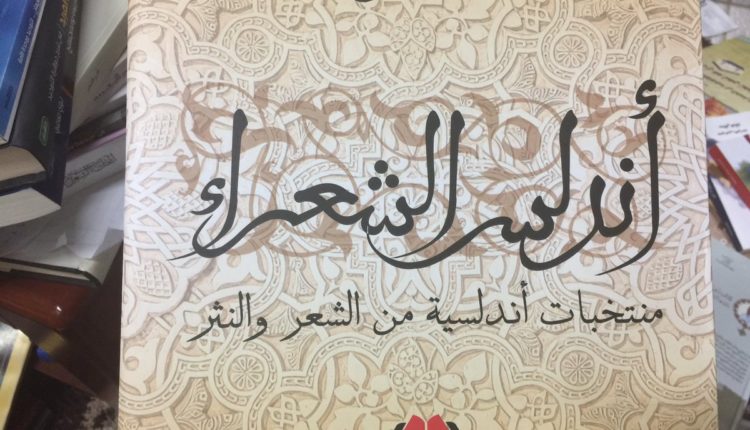 أندلس الشعراء
منتخبات أندلسية من الشعر والنثر